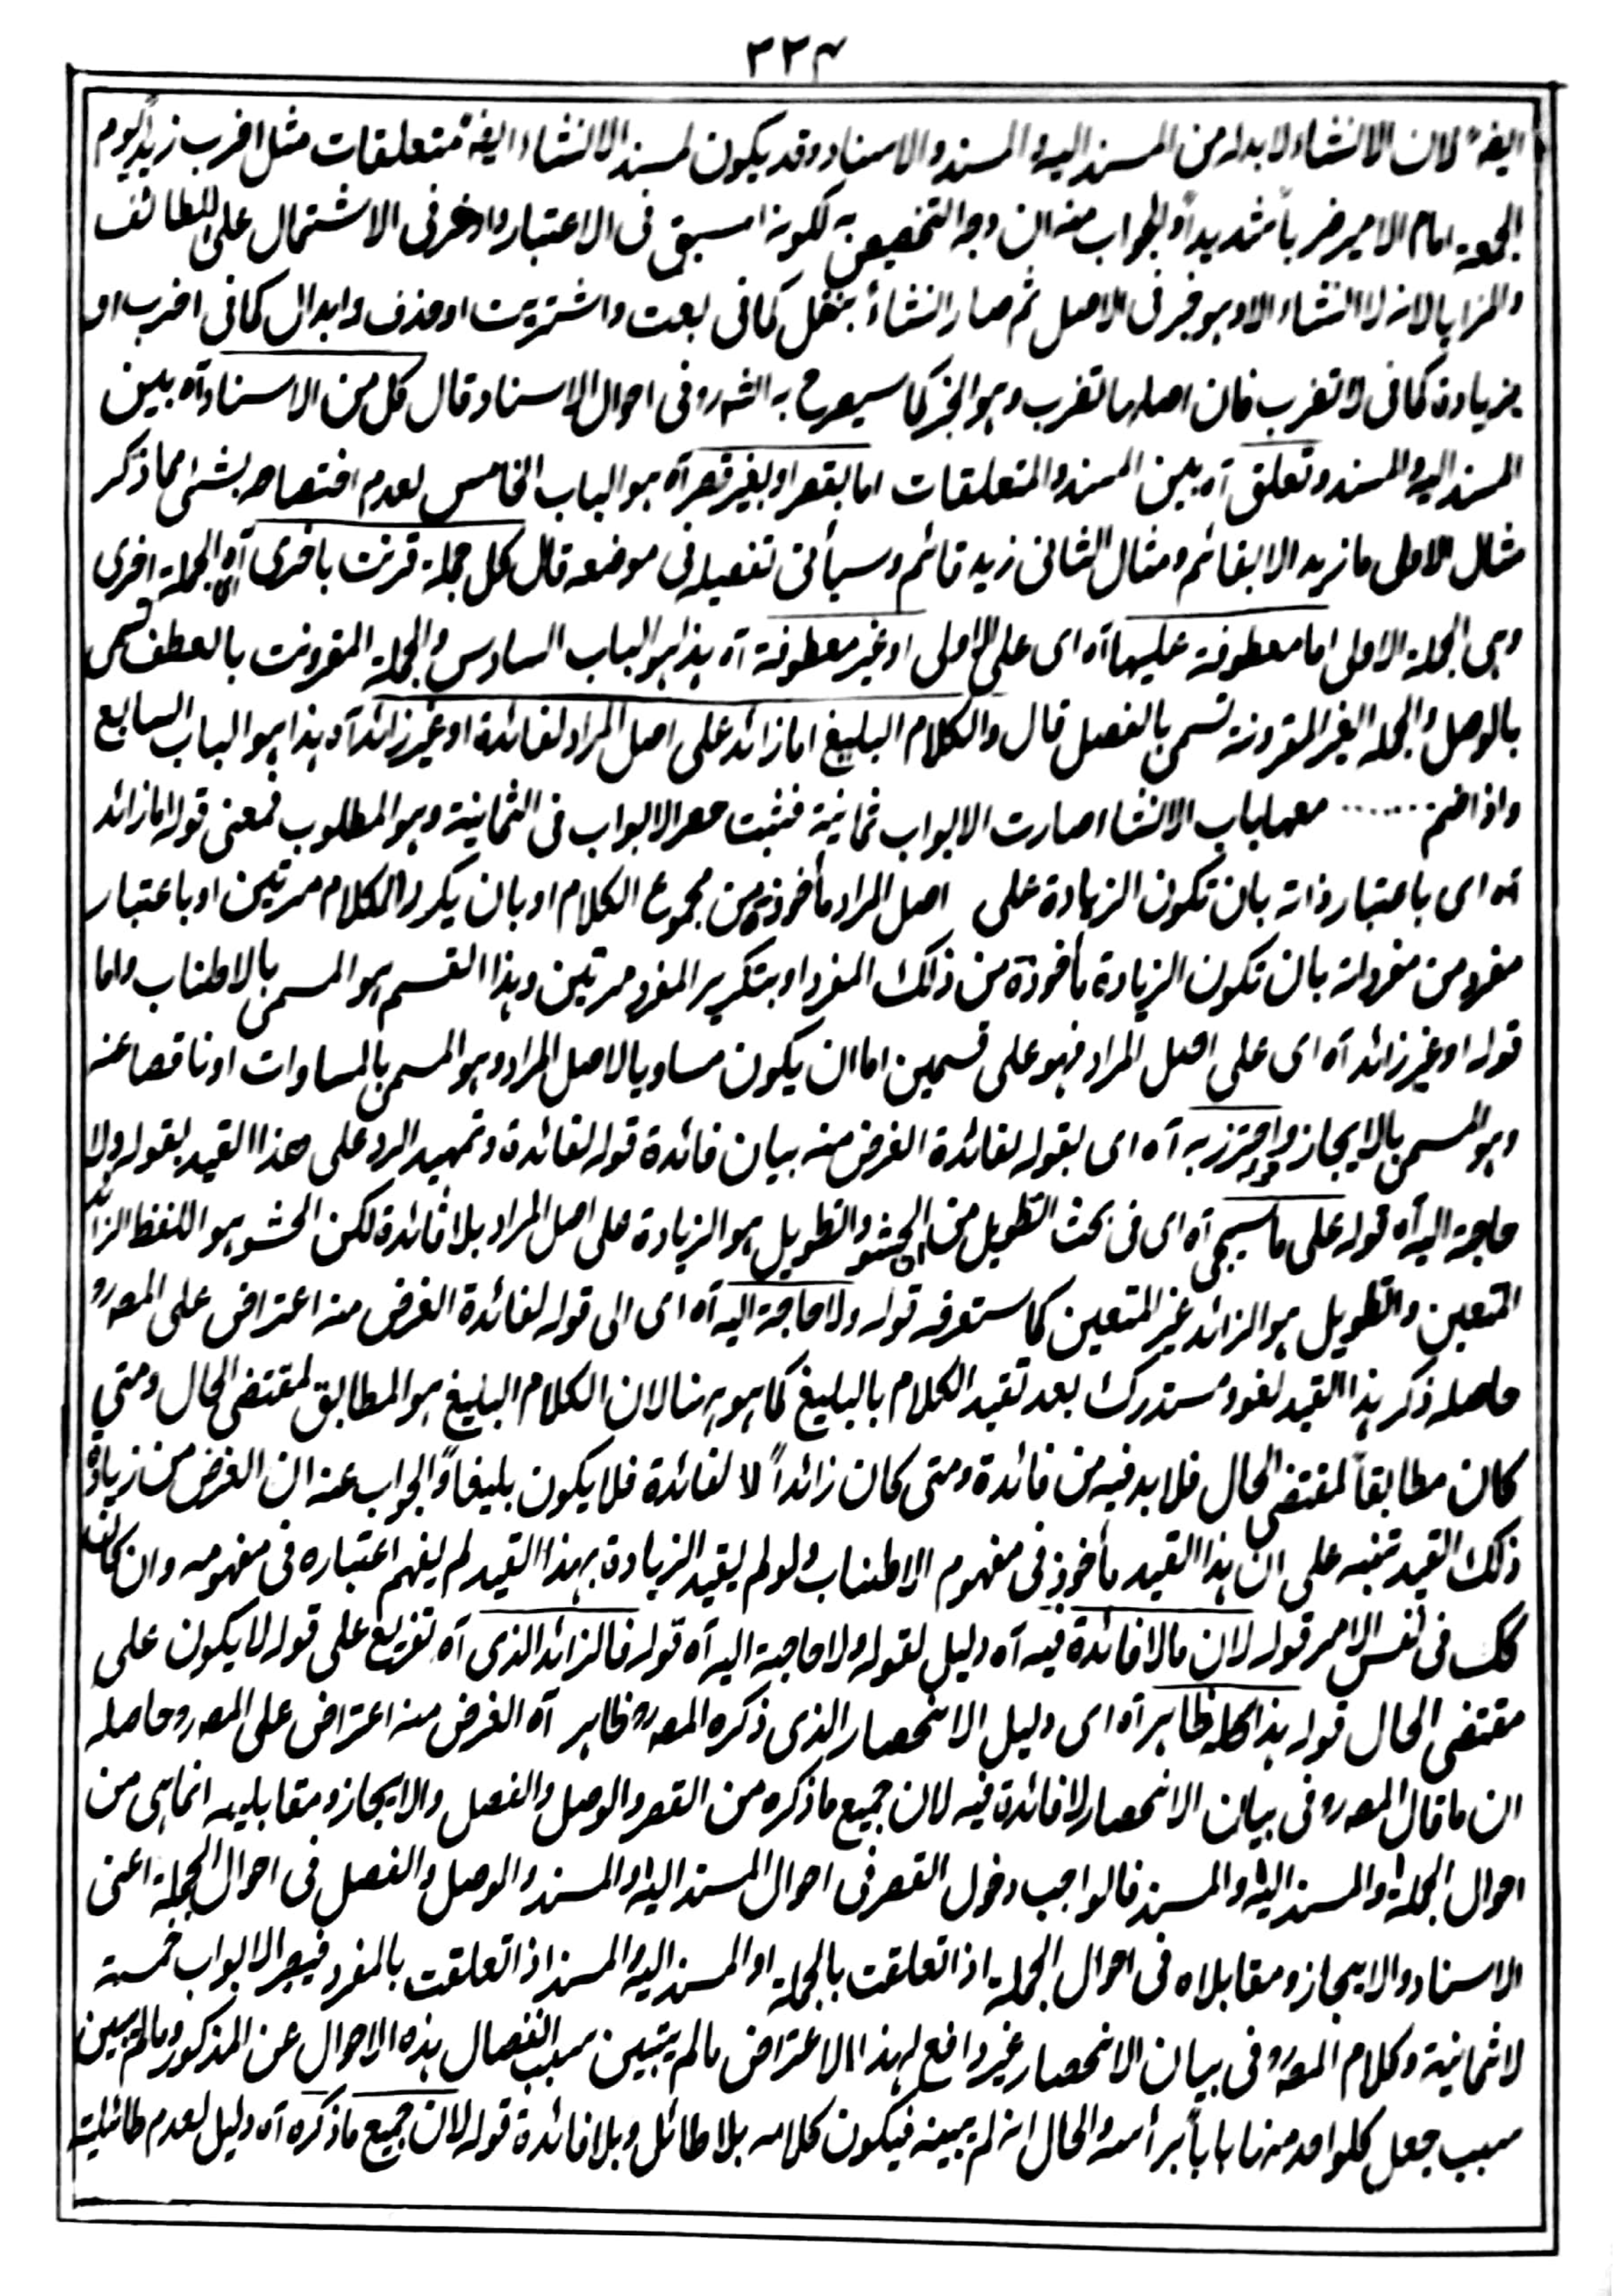 ٣٣٤
ايضاً لان الانشاء لا بد له من المسند اليه والمسند والاسناد وقد يكون لمسند الانشاء ايضاً متعلقات مثل اضرب زيداً يوم
الجمعة امام الامير ضرباً شديداً والجواب منه ان وجه التخصيص به لكونه اسبق فى الاعتبار وادخل فى الاشتمال على اللطائف
والمزايا لانه لا انشاء الا وهو خبر فى الاصل ثم صار انشاءً بنقل كما فى بعت واشتريت او حذف وابدال كما فى اضرب او
بزيادة كما فى لا تضرب فان اصلها تضرب وهو الخبر كما سيصرح به الشرو فى احوال الاسناد قال كل من الاسناد آه بين
المسند اليه والمسند وتعلق آه بين المسند والمتعلقات اما بقصر او بغير قصر آه هو الباب الخامس لعدم اختصاصه بشئ مما ذكر
مثال الاول ما زيد الا بقائم ومثال الثانى زيد قائم وسيأتى تفصيله فى موضعه قال كل جملة قرنت باخرى آه الجملة اخرى
وهى الجملة الاولى اما معطوفة عليها آه اى على الاولى او غير معطوفة آه هذا هو الباب السادس والجملة المقرونت بالعطف تسمى
بالوصل والجملة الغير المقرونة تسمى بالفصل قال والكلام البليغ اما زائد على اصل المراد لفائدة او غير زائد آه هذا هو الباب السابع
واذا ضم ....... معها باب الانشاء صارت الابواب ثمانية فثبت حصر الابواب فى الثمانية وهو المطلوب فمعنى قوله اما زائد
آه اى باعتبار ذاته بان تكون الزيادة على اصل المراد مأخوذة من مجموع الكلام او بان يكرر الكلام مرتين او باعتبار
مفرد من مفرداته بان تكون الزيادة مأخوذة من ذلك المفرد او بتكرير المفرد مرتين وهذا القسم هو المسمى بالاطناب واما
قوله او غير زائد آه اى على اصل المراد فهو على قسمين اما ان يكون مساويا لاصل المراد وهو المسمى بالمساوات او ناقصا عنه
وهو المسمى بالايجاز واحترز به آه اى بقوله لفائدة الغرض منه بيان فائدة قوله لفائدة وتمهيد الرد على هذا القيد بقوله ولا
حاجة اليه آه قوله على ما سيجى آه اى فى بحث التطويل من الحشو والتطويل هو الزيادة على اصل المراد بلا فائدة لكن الحشو هو اللفظ الزائد
المتعين والتطويل هو الزائد غير المتعين كما ستعرفه قوله ولا حاجة اليه آه اى الى قوله لفائدة الغرض منه اعتراض على المصرو
حاصله ذكر هذا القيد لغو ومستدرك بعد تقيد الكلام بالبليغ كما هو هنا لان الكلام البليغ هو المطابق لمقتضى الحال ومتى
كان مطابقاً لمقتضى الحال فلا بد فيه من فائدة ومتى كان زائداً لا لفائدة فلا يكون بليغاً والجواب عنه ان الغرض من زيادة
ذلك القيد تنبه على ان هذا القيد مأخوذ فى مفهوم الاطناب ولو لم يقيد الزيادة بهذا القيد لم يفهم اعتباره فى مفهومه وان كان
كك فى نفس الامر قوله لان ما لا فائدة فيه آه دليل لقوله ولا حاجة اليه آه قوله فالزائد الذى آه تفريع على قوله لا يكون على
مقتضى الحال قوله هذا كله ظاهر آه اى دليل الانحصار الذى ذكره المصرو ظاهر آه الغرض منه اعتراض على المصرو حاصله
ان ما قال المصرو فى بيان الانحصار لا فائدة فيه لان جميع ما ذكره من القصر والوصل والفصل والايجاز ومقابليه انما هى من
احوال الجملة والمسند اليه والمسند فالواجب دخول القصر فى احوال المسند اليه والمسند والوصل والفصل فى احوال الجملة اعنى
الاسناد والايجاز ومقابلاه فى احوال الجملة اذا تعلقت بالجملة او المسند اليه والمسند اذا تعلقت بالمفرد فيصير الابواب خمسة
لا ثمانية وكلام المصرو فى بيان الانحصار غير دافع لهذا الاعتراض ما لم يتبين سبب انفصال هذه الاحوال عن المذكور وما لم يبين
سبب جعل كلواحد منها باباً برأسه والحال انه لم يبينه فيكون كلامه بلا طائل وبلا فائدة قوله لان جميع ما ذكره آه دليل لعدم طائلية